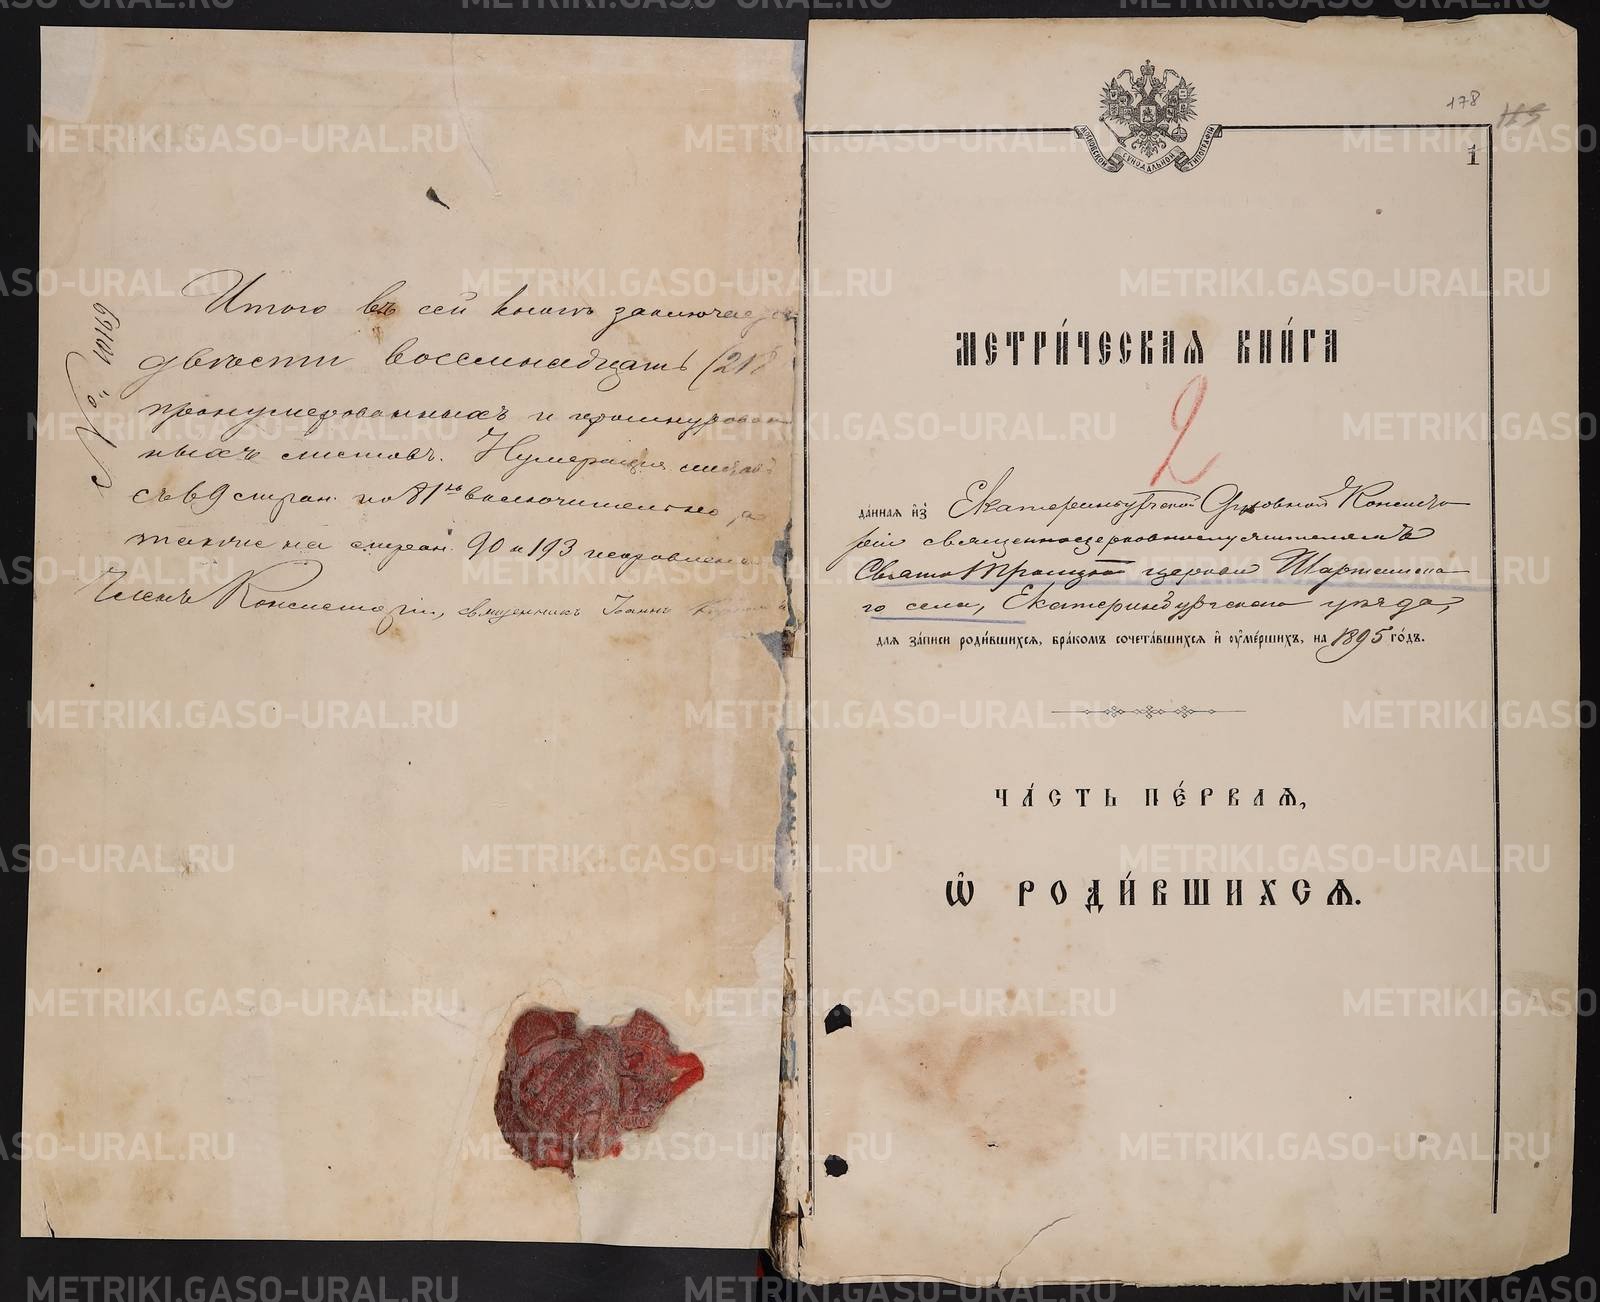 Итого въ сей книгѣ заключае
двѣсти восемнадцать (218
пронумерованныхъ и прошнурован
ныхъ листовъ. Нумерація
съ 69 стран. по 81 включительно
также на стран. 90 и 193 исправлена
Членъ Консисторіи, священникъ Іоаннъ
№ 10169
178
1
МОСКОВСКОЙ СѴНОДАЛЬНОЙ ТИПОГРАФІИ
МЕТРИ́ЧЕСКАѦ КНИ́ГА
2
да́ннаѧ и҆зъ Екатеринбургской Духовной Консисто
ріи священноцерковнослужителямъ
Свято Троицкой церкви Шарташска
го села, Екатеринбургскаго уѣзда,
длѧ за́писи роди́вшихсѧ, бра́комъ сочета́вшихсѧ и҆ ᲂу҆ме́ршихъ, на 1895 го́дъ.
ЧА́СТЬ ПЕ́РВАѦ,
Ѡ҆ РОДИ́ВШИХСѦ.
METRIKI.GASO-URAL.RU